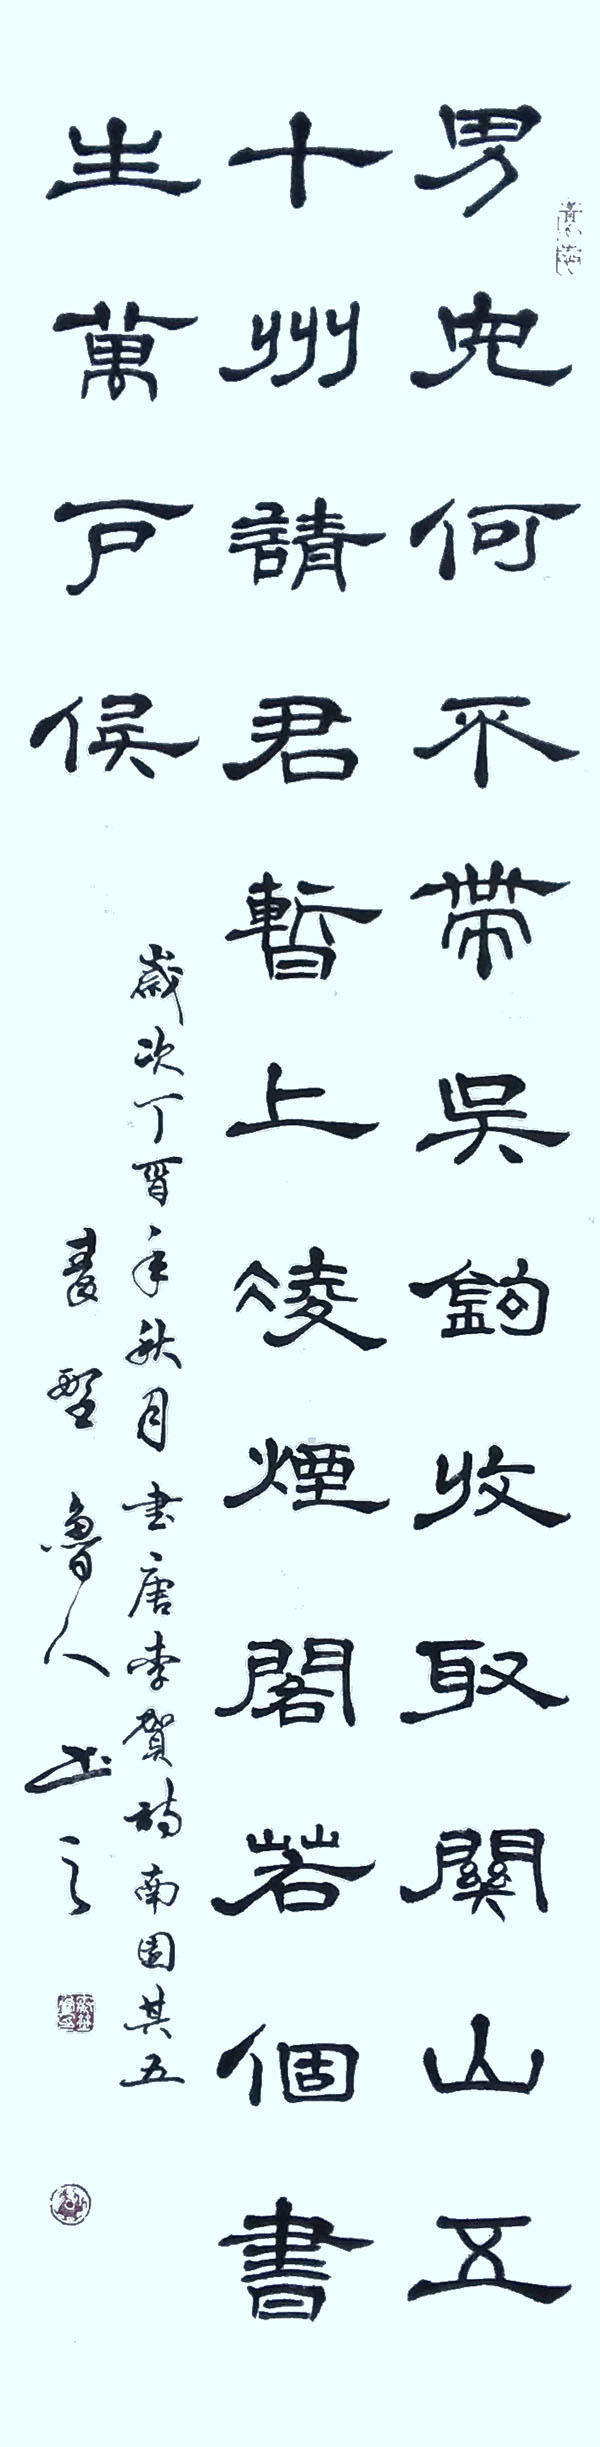 男兒何不帶吳鉤收取關山五
十州請君暫上凌煙閣若個書
生萬戶侯
歲次丁酉年秋月书唐李賀詩南園其五
魯人书之